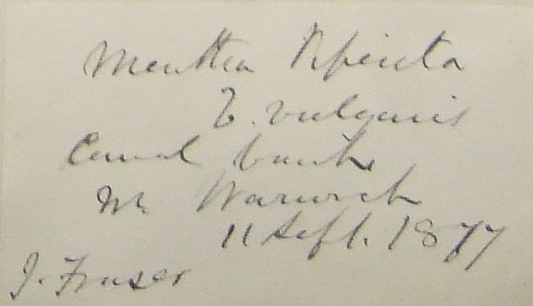 Mentha Piperita
b. vulgaris
Canal bank
Nr Warwick
11 Sept. 1877
J. Fraser